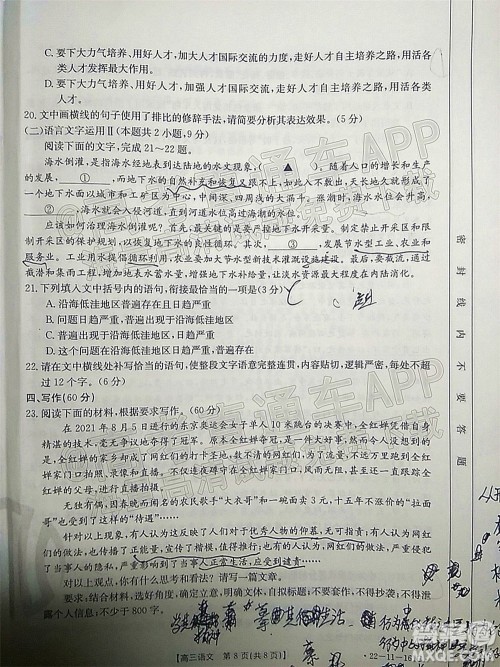 C. 要下大力气培养、用好人才，加大人才国际交流的力度，走好人才自主培养之路，用活各
类人才发挥最大作用。
D. 要下大力气培养、用好人才，加强人才国际交流的力度，走好人才自主培养之路，用活各
类人才，发挥最大作用。
20. 文中画横线的句子使用了排比的修辞手法，请简要分析其表达效果。(5分)
(二)语言文字运用Ⅱ(本题共2小题，9分)
阅读下面的文字，完成21～22题。
海水倒灌，是指海水经地表到达陆地的水文现象，( ▲ )。随着人口的增长和生产
的发展，①，而地下水的自然补充和恢复又跟不上，如此入不敷出，天长地久就形成了
地下水面以城市和工矿区为中心，中间深、四周浅的大漏斗。涨潮时，当海水水位高于河流，
②，海水就会入侵河道，直到河道水位高过海潮的水位。
应该如何治理海水倒灌呢？首先，最关键的是要严控地下水开采。划定禁止开采区和限
制开采区的保护规划，以恢复地下水的良性循环。其次，③，发展节水型工业、农业和
服务业。工业用水提倡循环利用，农业要加大节水型新技术灌溉设施建设。最后，要截流，通过
截潜和集雨工程，增加地表水蓄水量，增强地下水补给量，让淡水资源最大程度在内陆消化。
21. 下列填入文中括号内的语句，衔接最恰当的一项是(3分)
A. 沿海低洼地区普遍存在且日趋严重
B. 问题日趋严重，普遍出现于沿海低洼地区
C. 普遍出现于沿海低洼地区，日趋严重
D. 这个问题在沿海低洼地区日趋严重，普遍存在
22. 请在文中横线处补写恰当的语句，使整段文字语意完整连贯，内容贴切，逻辑严密，每处不超
过12个字。(6分)
四、写作(60分)
23. 阅读下面的材料，根据要求写作。(60分)
在2021年8月5日进行的东京奥运会女子单人10米跳台的决赛中，全红婵凭借自身
精湛的技术，毫无争议地夺得了冠军。原本全红婵夺冠，是一件大好事，然而令人没想到的
是，全红婵的家却成了网红们的打卡圣地，数不清的网红们，为了流量，不远万里跑到全红婵
家门口拍照、录像和直播。不久之后，全红婵家门口，风雨无阻，甚至还一直跟踪全
红婵的父母，进行直播拍摄。
无独有偶，因春晚而闻名的农民歌手“大衣哥”和一碗面卖3元，十五年不涨价的“拉面
哥”也受到了这样的“待遇”……
针对以上现象，有人认为这反映了人们对于优秀人物的仰慕，无可指责；有人认为网红
们的做法，也传播了正能量，宣传了楷模，值得推行；也有的人认为，网红们的做法，严重侵犯
了当事人的隐私，严重影响到了当事人正常生活，应受到谴责……
对以上观点，你有什么思考和看法？请写一篇文章。
要求：结合材料，选好角度，确定立意，明确文体，自拟标题；不要套作，不得抄袭；不得泄
露个人信息；不少于800字。
【高三语文 第8页(共8页)】
密封线内不要答题